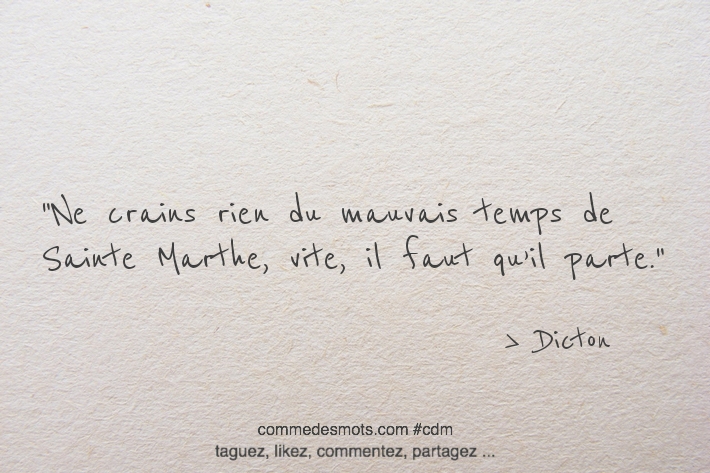 "Ne crains rien du mauvais temps de
Sainte Marthe, vite, il faut qu'il parte."
> Dicton
commedesmots.com #cdm
taguez, likez, commentez, partagez ...